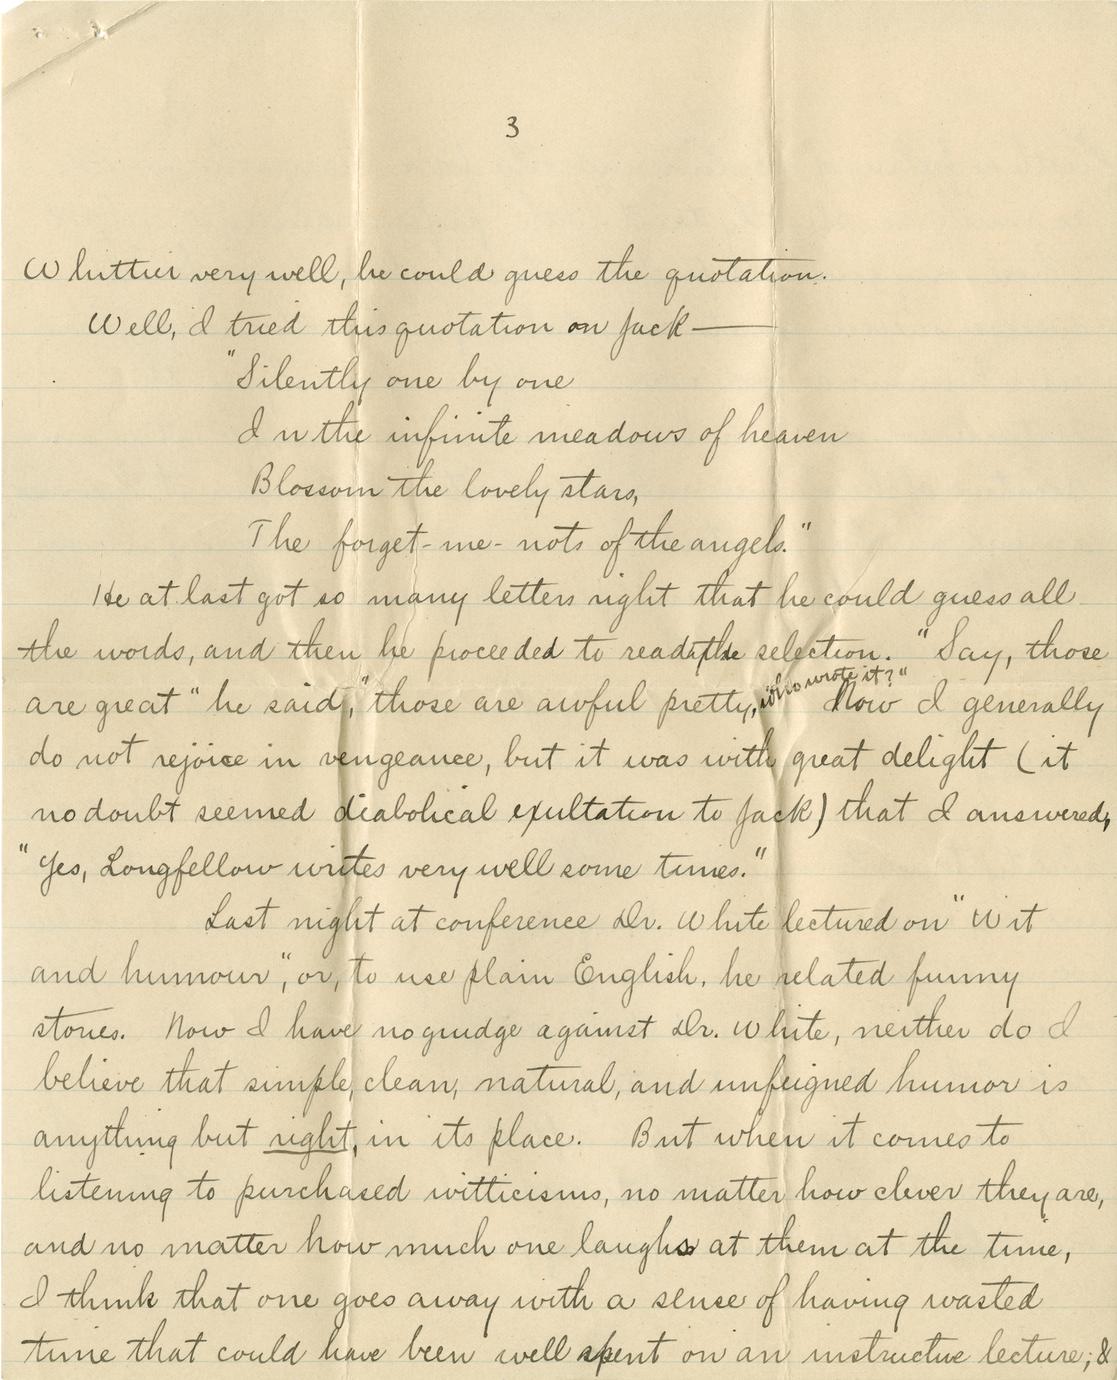 3
Whittier very well, he could guess the quotation.
Well, I tried this quotation on Jack —
"Silently one by one
In the infinite meadows of heaven
Blossom the lovely stars,
The forget-me-nots of the angels."
He at last got so many letters right that he could guess all
the words, and then he proceeded to read the selection. "Say, those
are great" he said, "those are awful pretty, who wrote it?" Now I generally
do not rejoice in vengeance, but it was with great delight (it
no doubt seemed diabolical exultation to Jack) that I answered,
"Yes, Longfellow writes very well some times."
Last night at conference Dr. White lectured on "Wit
and humour", or, to use plain English, he related funny
stories. Now I have no grudge against Dr. White, neither do I
believe that simple, clean, natural, and unfeigned humor is
anything but right, in its place. But when it comes to
listening to purchased witticisms, no matter how clever they are,
and no matter how much one laughs at them at the time,
I think that one goes away with a sense of having wasted
time that could have been well spent on an instructive lecture; &